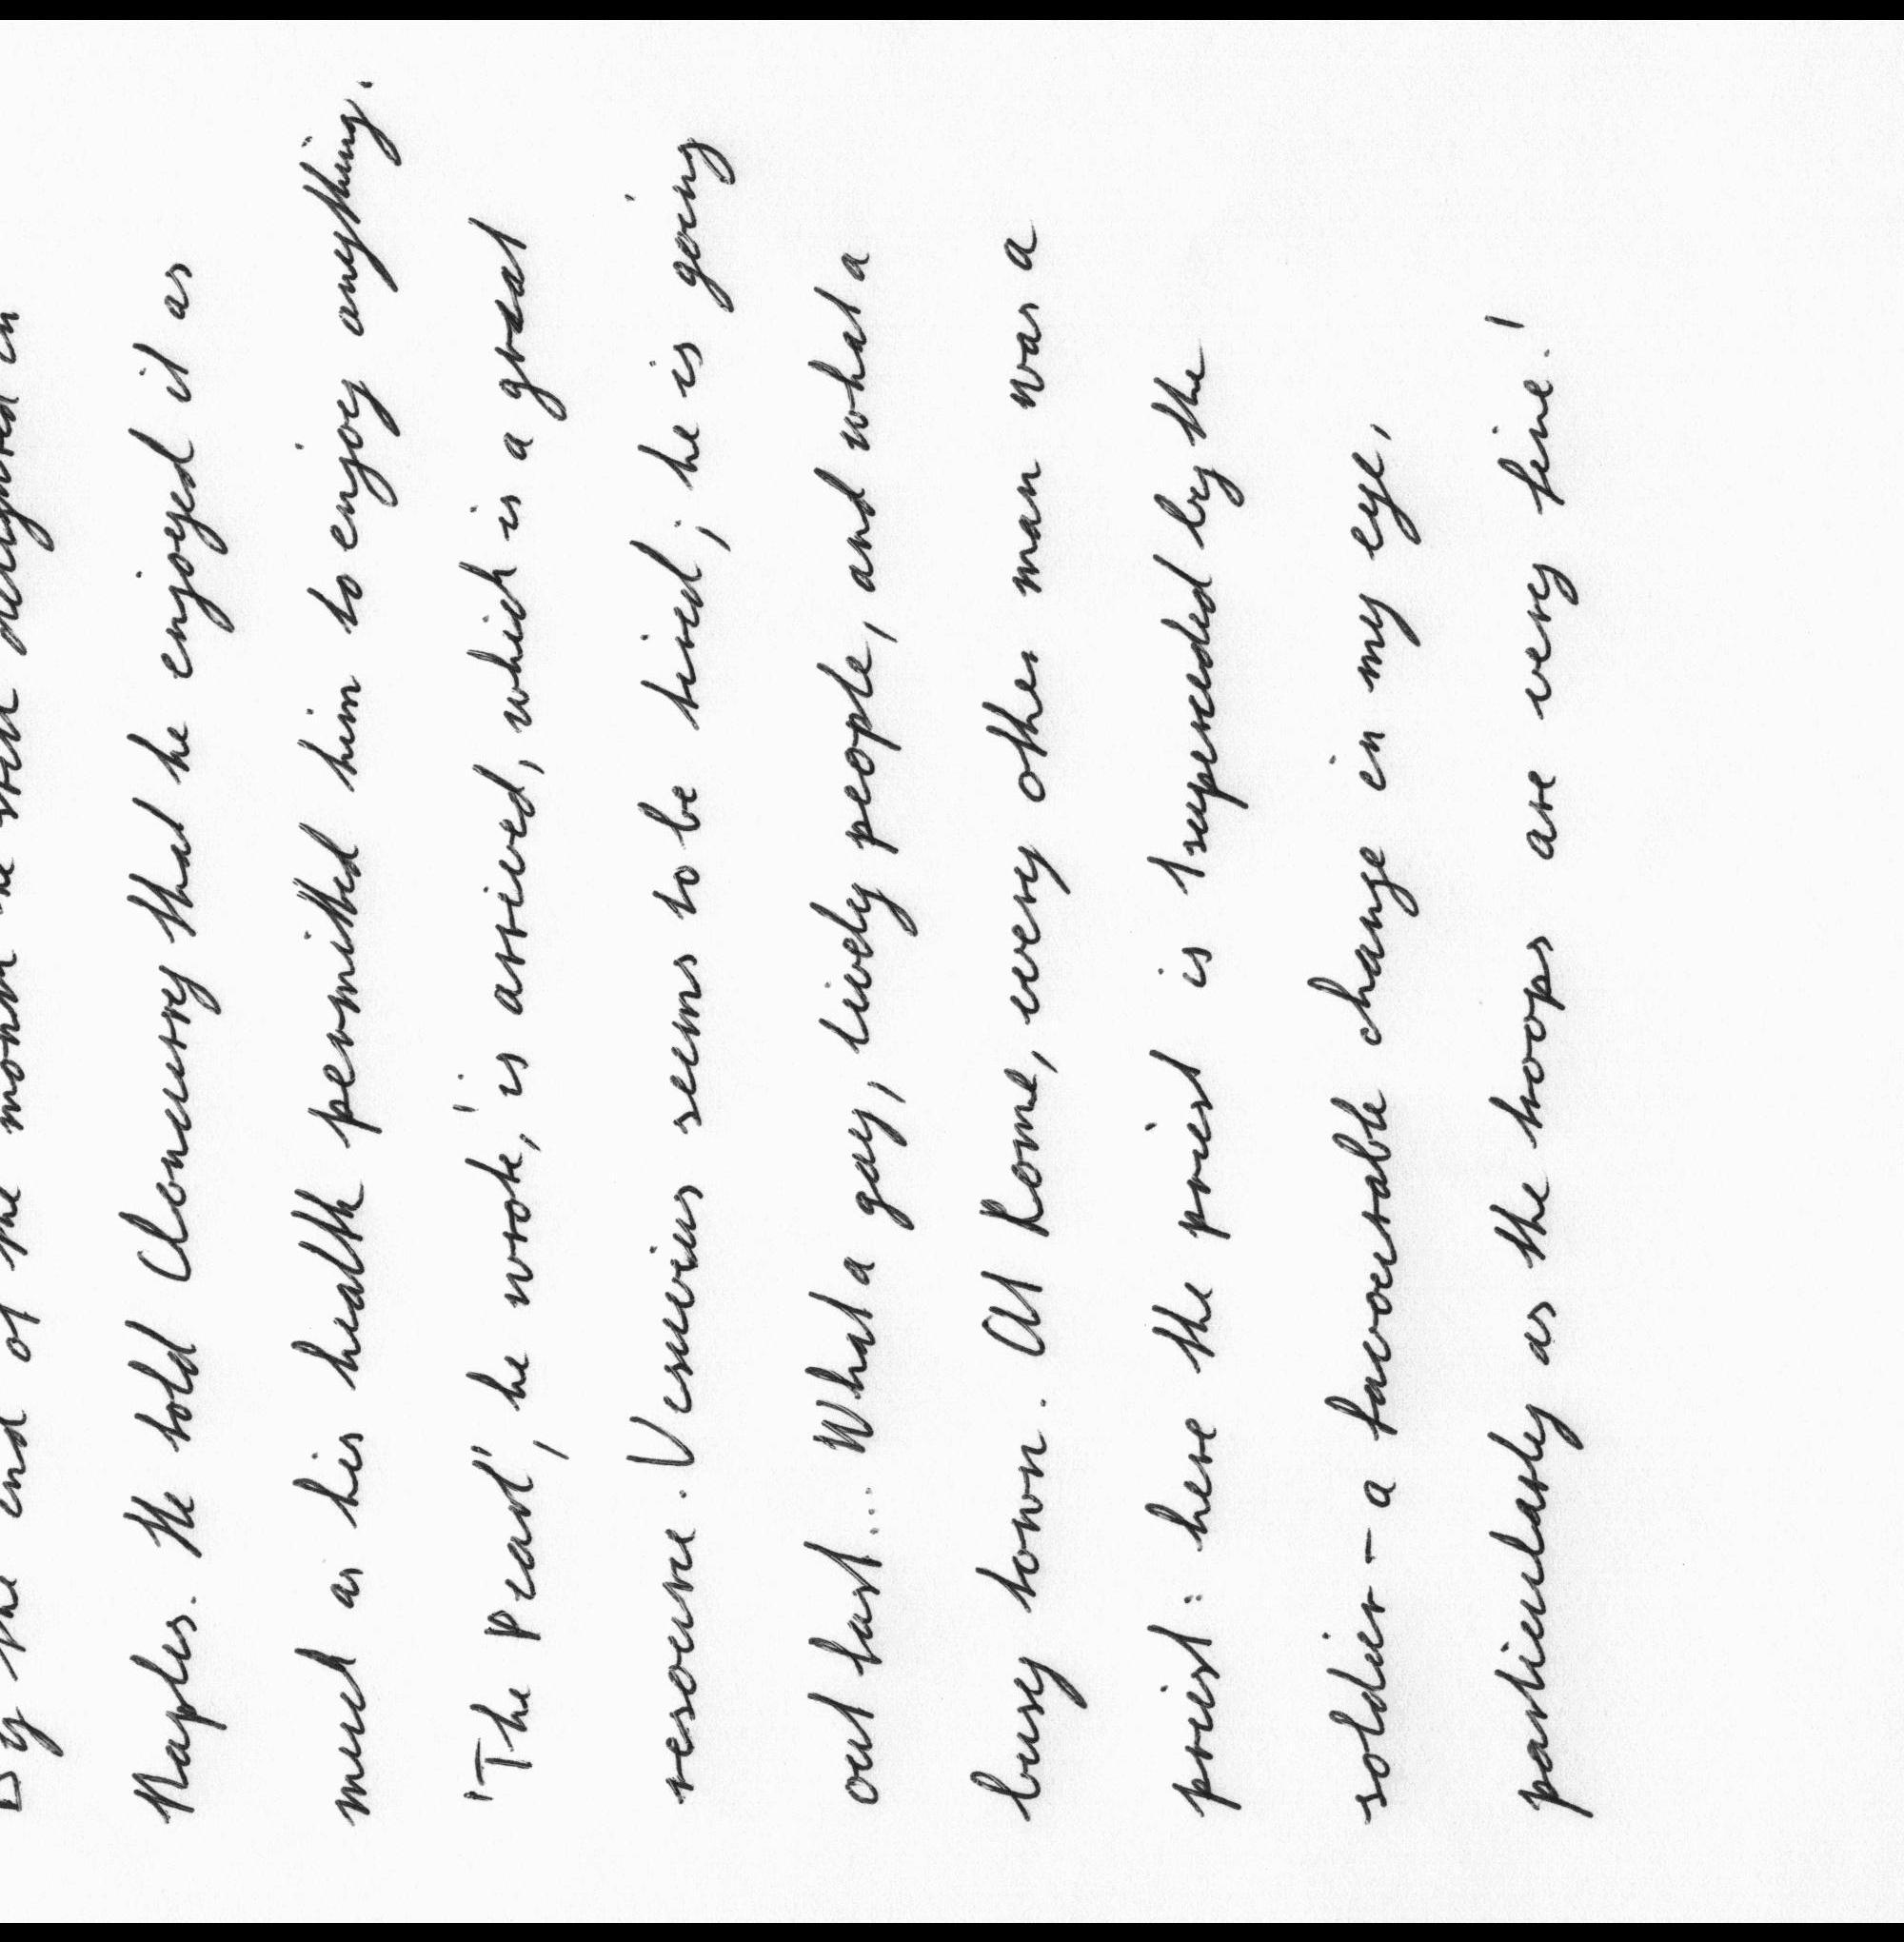 By the end of the month he still delighted in
Naples. He told Cloncurry that he enjoyed it as
much as his health permitted him to enjoy anything.
'The Pearl', he wrote, 'is arrived, which is a great
resource. Vesuvius seems to be tired; he is going
out fast... What a gay, lively people, and what a
busy town. At Rome, every other man was a
priest: here the priest is superceded by the
soldier - a favourable change in my eye,
particularly as the troops are very fine.'